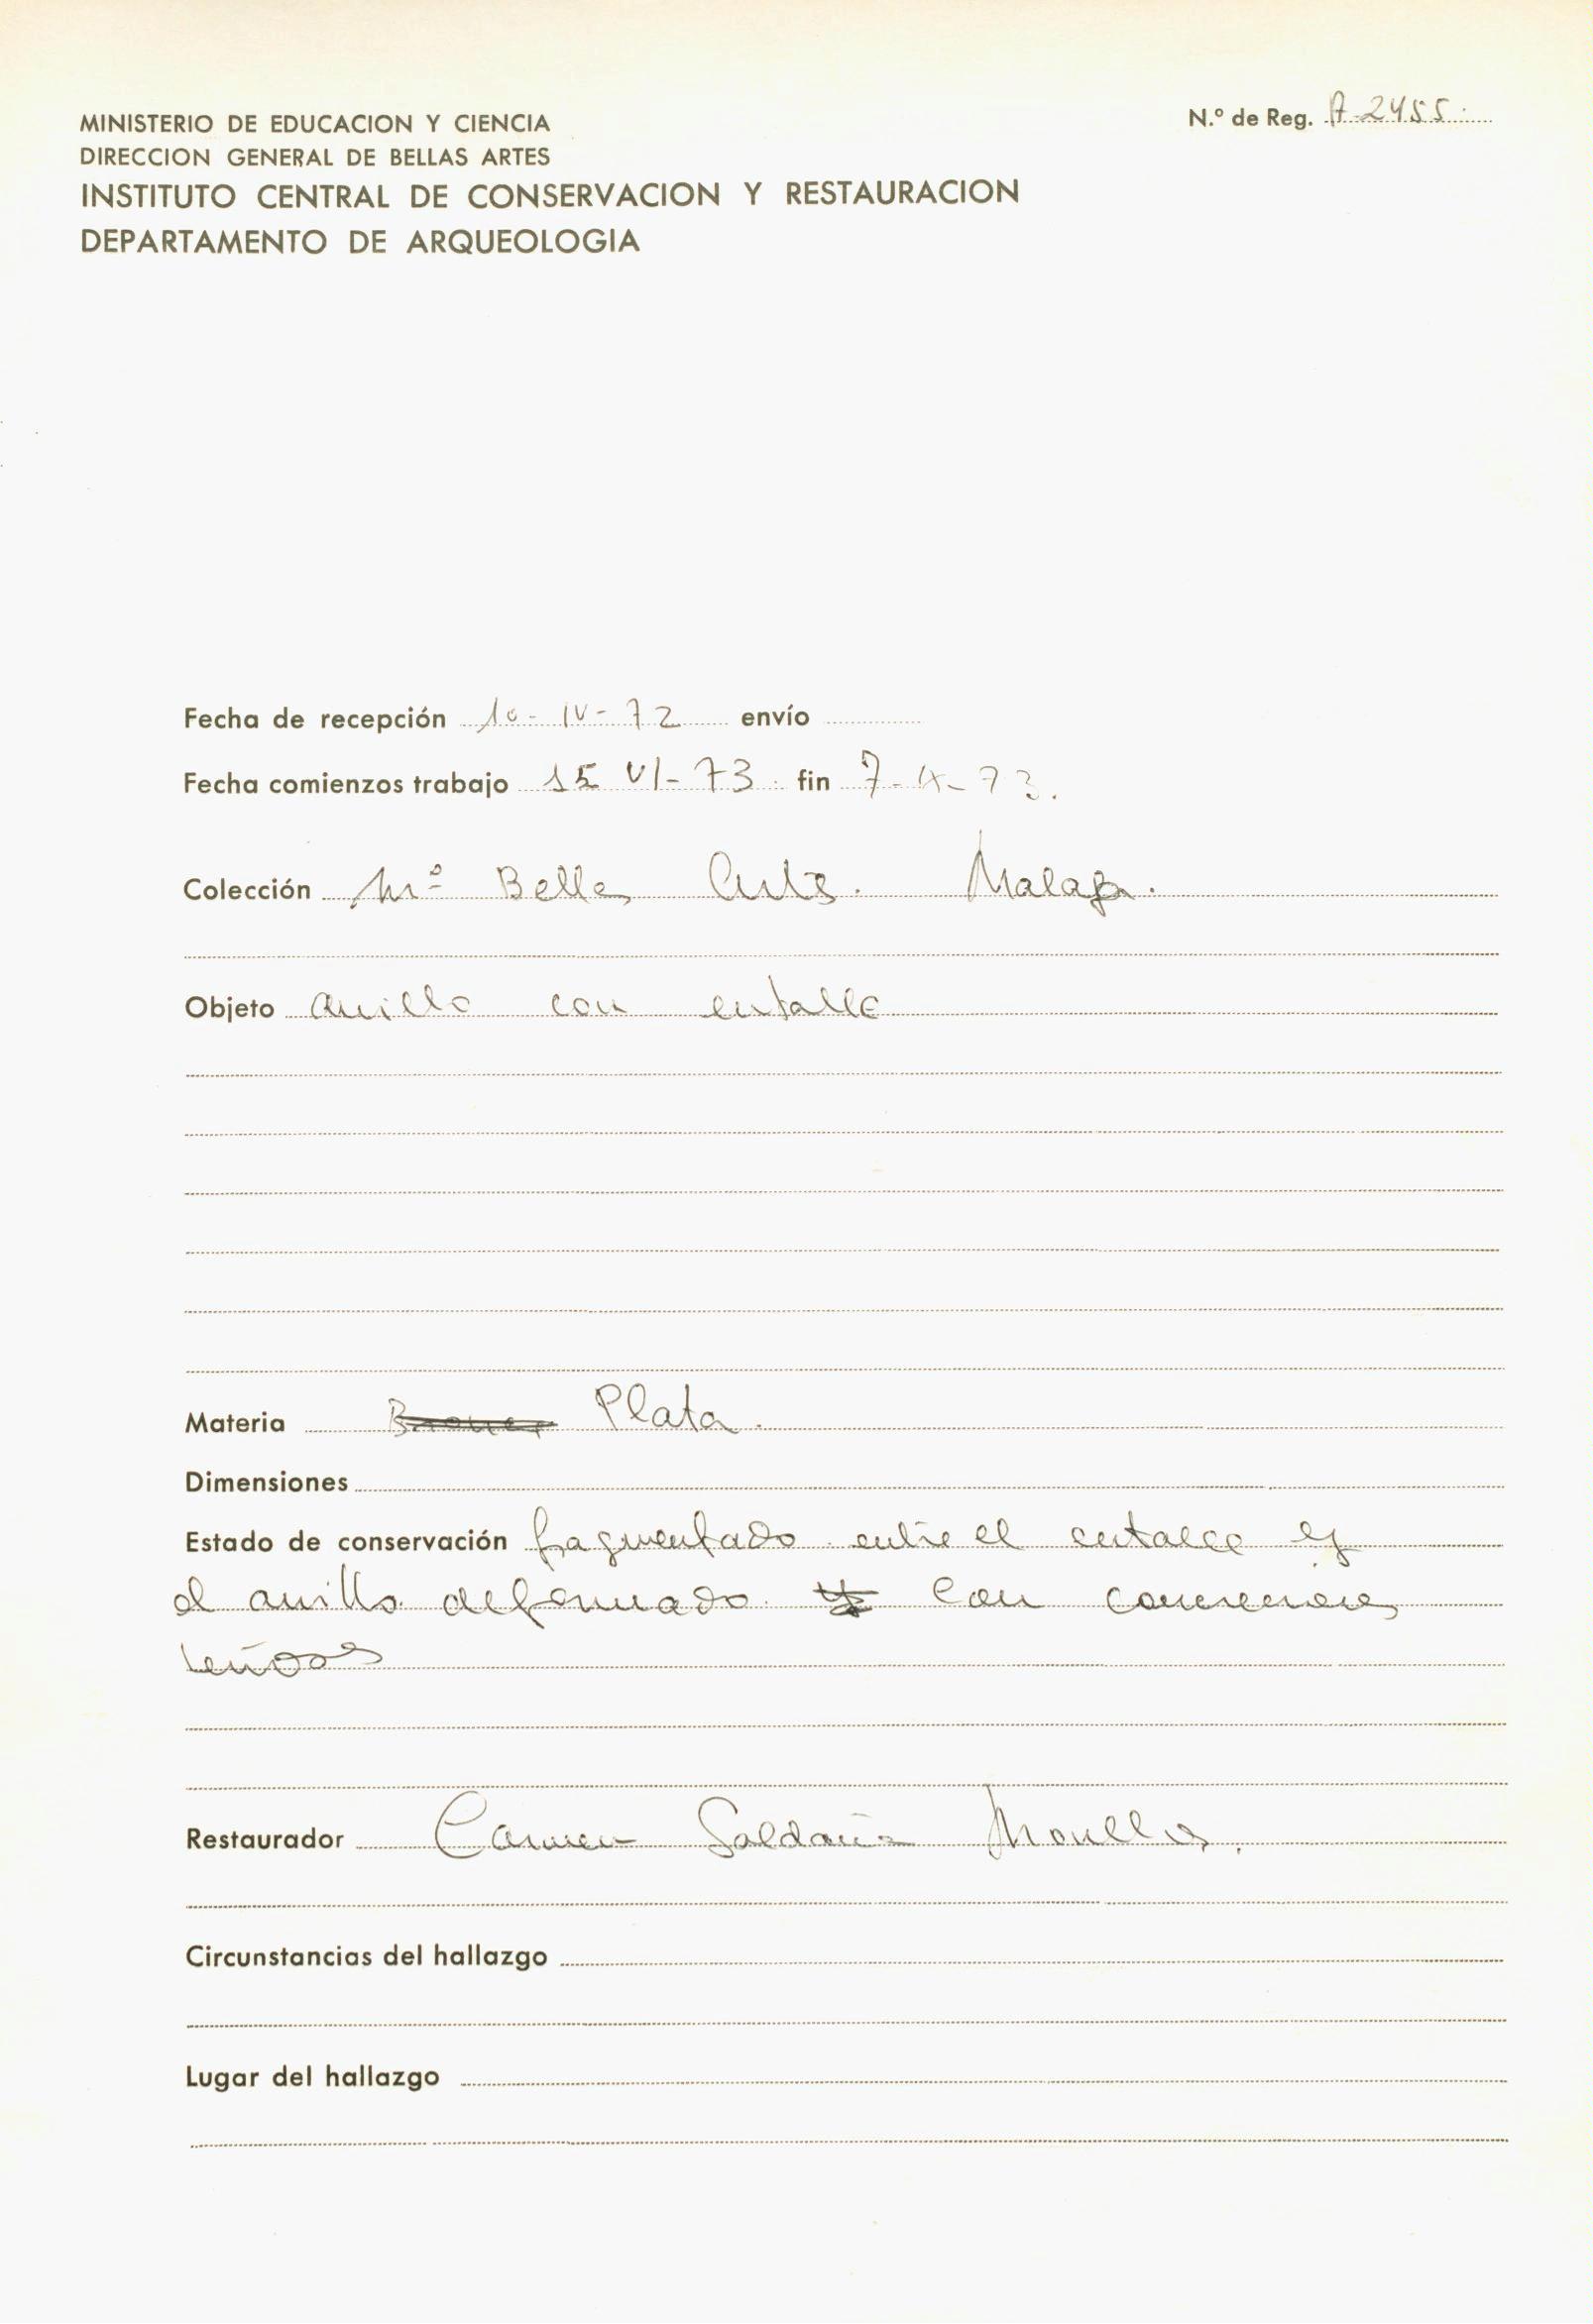 MINISTERIO DE EDUCACION Y CIENCIA
DIRECCION GENERAL DE BELLAS ARTES
INSTITUTO CENTRAL DE CONSERVACION Y RESTAURACION
DEPARTAMENTO DE ARQUEOLOGIA
N.º de Reg. A-2455
Fecha de recepción 10-IV-72 envío
Fecha comienzos trabajo 15 VI-73 fin 7-IX-73.
Colección Mº Bellas Artes. Malaga.
Objeto anillo con entalle
Materia Bronce Plata.
Dimensiones
Estado de conservación fragmentado entre el entalle y
el anillo deformado y con concreciones
Restaurador Carmen Saldaña
Circunstancias del hallazgo
Lugar del hallazgo